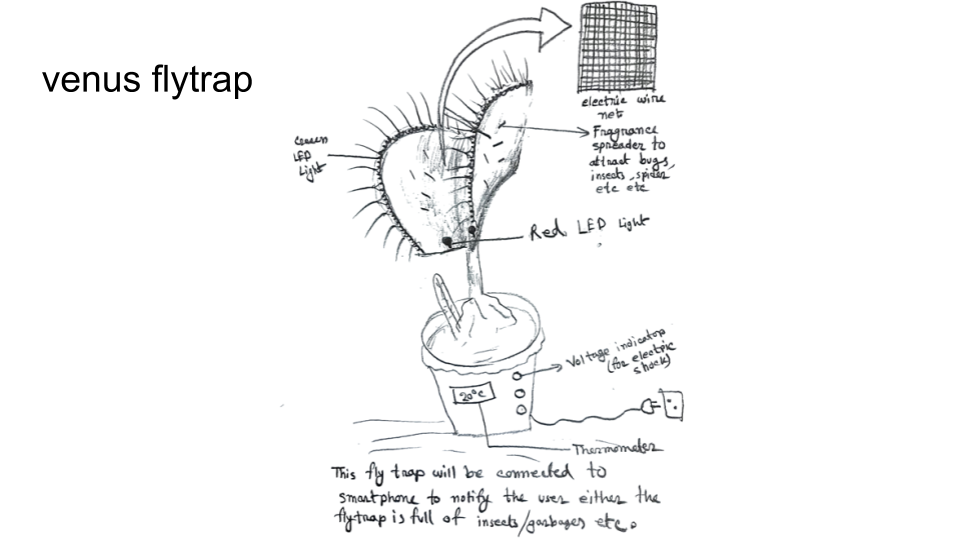 venus flytrap
electric wire
net
Fragnance
spreader to
attract bugs,
insects, spider
etc etc
Green
LED
light
Red LED light
Voltage indicator
(for electric
shock)
20°C
Thermometer
This fly trap will be connected to
smartphone to notify the user either the
flytrap is full of insects/garbages etc.